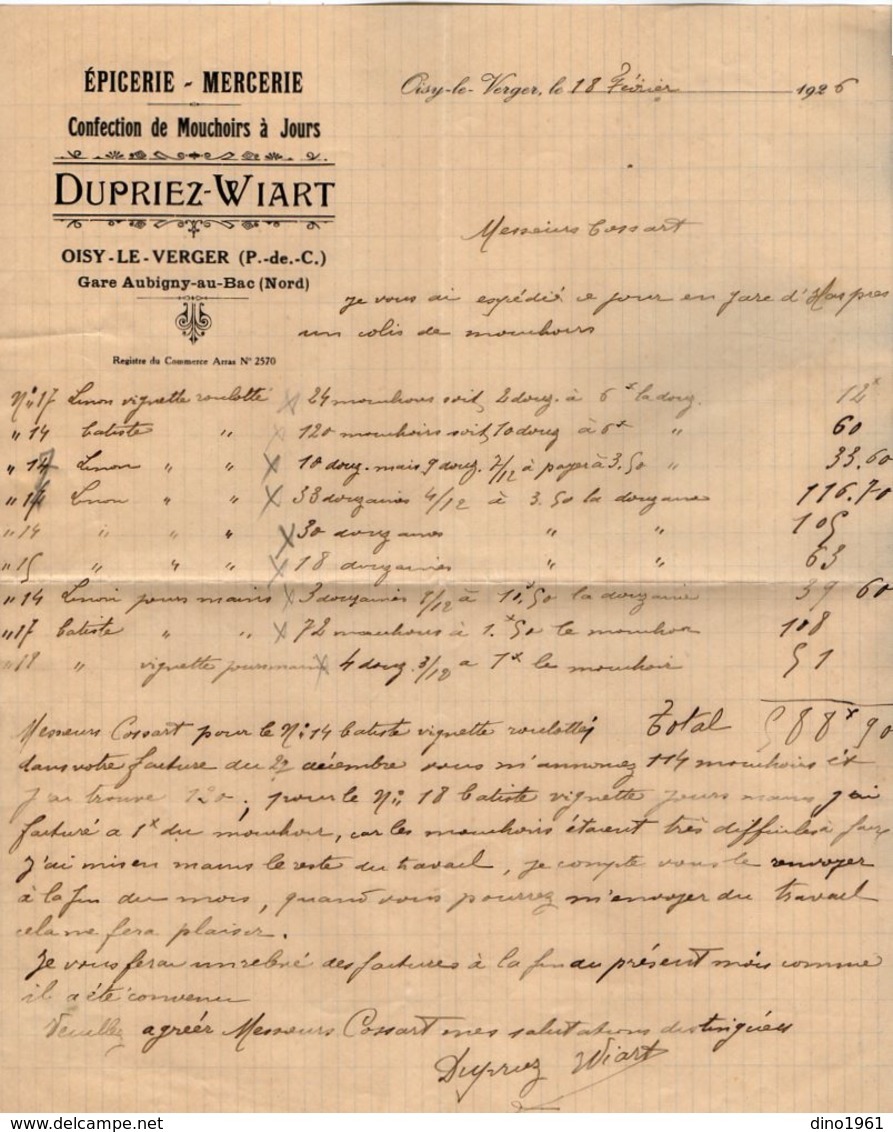 ÉPICERIE - MERCERIE
Confection de Mouchoirs à Jours
DUPRIEZ-WIART
OISY-LE-VERGER (P.-de.-C.)
Gare Aubigny-au-Bac (Nord)
Registre du Commerce Arras N° 2570
Oisy-le-Verger, le 18 Février 1926
Messeurs Cossart
je vous ai expédié ce jour en gare d'Haspres
un colis de mouchoirs
N° 17 Linon vignette roulotté x 24 mouchoirs soit 2 douz. à 6x la douz. 12x
" 14 batiste " x 120 mouchoirs soit 10 douz à 6x " 60
" 17 Linon " " x 10 douz. mais 9 douz. 7/12 à payer à 3.50 " 33.60
" 14 Linon " " x 33 douzaines 4/12 à 3.50 la douzaine 116.70
" 14 " " " x 30 douzaines " " 105
" 15 " " " x 18 douzaines " " 63
" 14 Linon jours mains x 3 douzaines /12 à 11x50 la douzaine 39 60
" 17 batiste " " x 72 mouchoirs à 1.x50 le mouchoir 108
" 18 " vignette jours mains x 4 douz. 3/12 a 1x le mouchoir 51
Total 588x90
Messeurs Cossart pour le N° 14 batiste vignette roulottés
dans votre facture du 27 décembre vous m'annoncez 114 mouchoirs et
j'ai trouvé 120, pour le N° 18 batiste vignette jours mains j'ai
facturé a 1x du mouchoir, car les mouchoirs étaient très difficiles à faire
J'ai mis en mains le reste du travail, je compte vous le renvoyer
à la fin du mois, quand vous pourrez m'envoyer du travail
cela me fera plaisir.
Je vous ferai un relevé des factures à la fin du présent mois comme
il a été convenu
Veuillez agréér Messeurs Cossart mes salutations distinguées
Dupriez Wiart
delcampe.net
dino1961